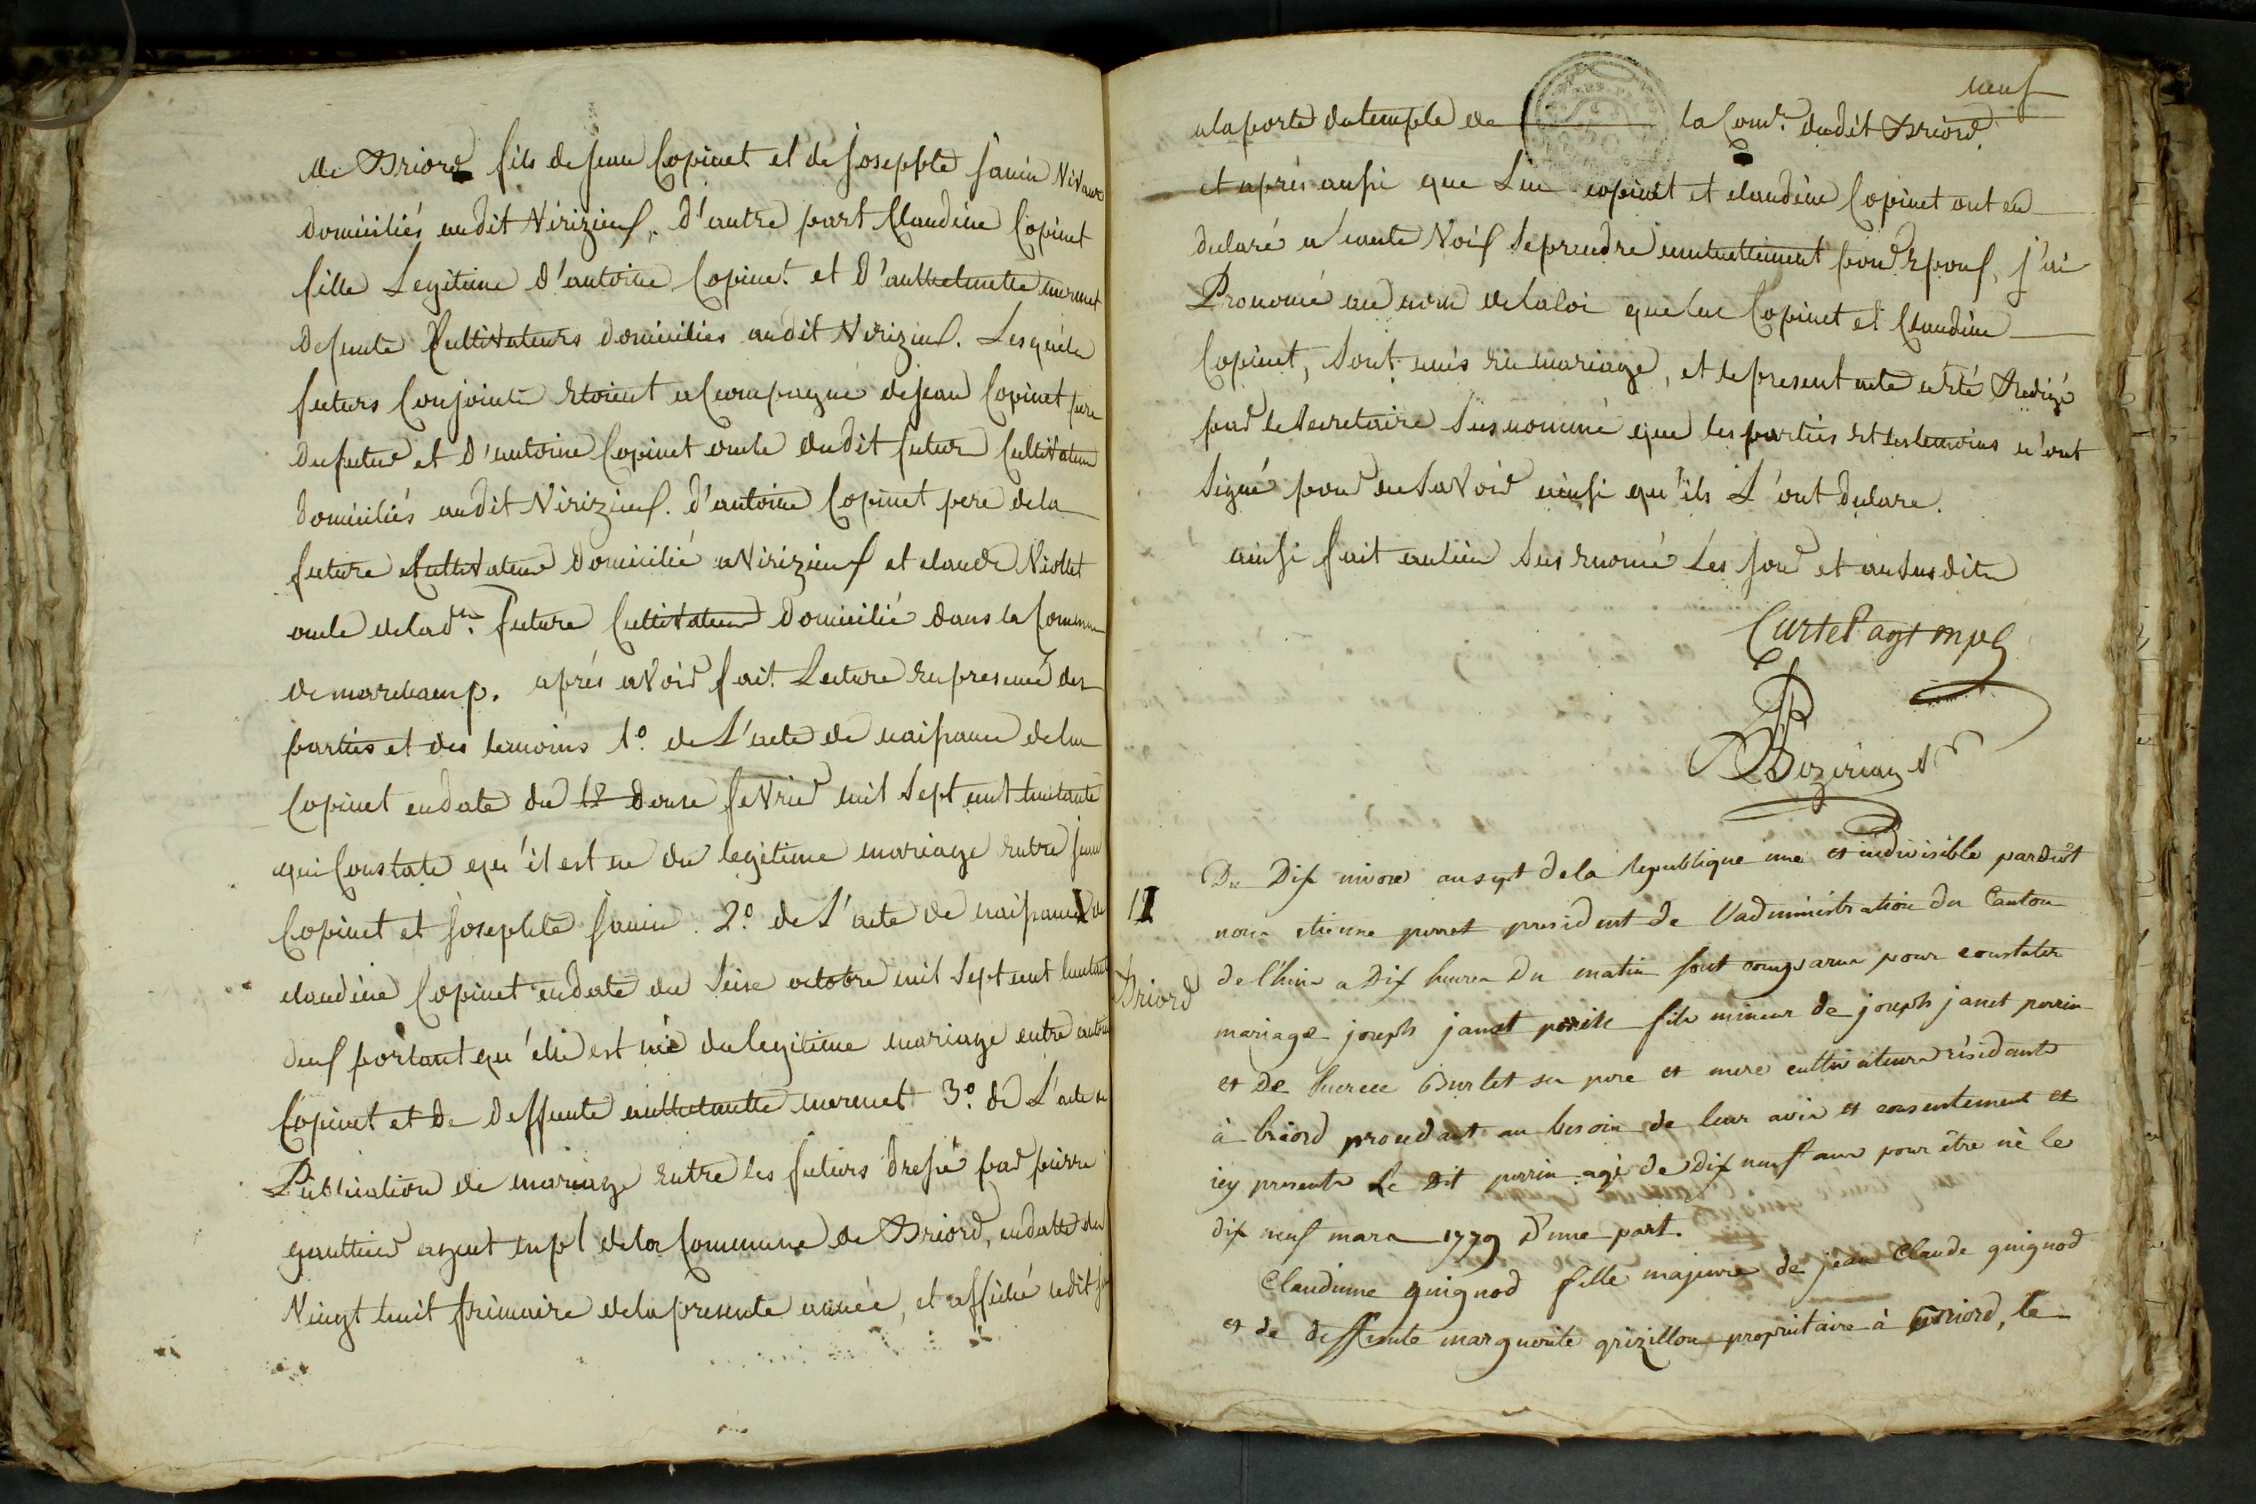 de Briord fils de jean Copinet et de josephte janin vivans
domiciliés audit Vérizieuf, d'autre part Claudine Copinet
fille Legitime d'antoine Copinet et d'anthelmette mermet
defunte Cultivateurs domiciliés audit Verizieuf. Lesquels
futurs Conjoints Etoient acompagné de jean Copinet pere
du futur et d'antoine Copinet oncle dudit futur Cultivateurs
domiciliés audit Virizieuf. d'antoine Copinet pere de la
future Cultivateur domicilié a Virizieuf et claude Violet
oncle de lad.te future Cultivateur domicilié dans la Commune
de marchamp. aprés avoir fait Lecture en presence des
parties et des temoins 1º. de L'acte de naissance de luc
Copinet en date du 12 douse fevrier mil sept cent huitante
qui Constate qu'il est né du legitime mariage entre jean
Copinet et josephte janin 2º. de L'acte de naissance de
claudine Copinet en date du seise octobre mil sept cent
neuf portant qu'elle est née du legitime mariage entre antoine
Copinet et de deffunte anthelmette mermet 3º. de L'acte de
Publication de mariage entre les futurs dressé par pierre
gauttier agent mpl de la Commune de Briord, en datte du
Vingt huit frimaire de la presente année, et affiché ledit jour
neuf
a la porte du temple de la Com.e dudit Briord.
et aprés aussi que Luc copinet et claudine Copinet ont eu
declaré a haute Voix se prendre mutuellement pour Epoux, j'ai
Prononcé au nom de la loi que luc Copinet et Claudine
Copinet, sont unis en mariage, et le present acte a été Redigé
par le secretaire susnommé que les parties et les temoins n'ont
signé pour ne savoir ainsi qu'ils L'ont declare.
ainsi fait au lieu sus enomé Les jour et an susdits
Curtel agt mpl
Bozerian
11
Briord
Du dix nivose an sept de la republique une et indivisible pardevt
nous etienne perret president de l'administration du Canton
de l'huis a dix heures du matin sont comparus pour constater
mariage joseph janet perrin fils mineur de joseph janet perrin
et de lucrece Burlet ses pere et mere cultivateurs résidants
à briord procedant au besoin de leur avis et consentement et
icy presents Le dit perrin agé de dix neuf ans pour être né le
dix neuf mars 1779 d'une part.
Claudinne guignod fille majeure de jean Claude guignod
et de deffunte marguerite grizillon propriétaire à Briord, le